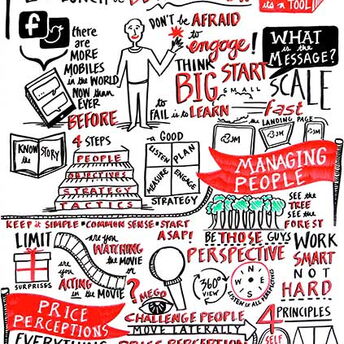 its a TOOL!
f
there are
MORE
MOBILES
in the WORLD
NOW than
EVER
BEFORE
DON'T be AFRAID
to
engage!
THINK
BIG
START
SMALL
SCALE
fast
to
FAIL is to LEARN
WHAT
is the
MESSAGE?
the LANDING PAGE
KNOW the STORY
4 STEPS
PEOPLE
OBJECTIVES
STRATEGY
TACTICS
GOOD
LISTEN
PLAN
MEASURE
ENGAGE
STRATEGY
MANAGING
PEOPLE
SEE the
TREE
SEE the
FOREST
KEEP it SIMPLE * COMMON SENSE * START
ASAP!
BE THOSE GUYS
LIMIT
SURPRISES
are you
WATCHING
the MOVIE
or
are you
ACTING in the MOVIE
?
PERSPECTIVE
360°
VIEW
N
E
S
W
WORK
SMART
NOT
HARD
PRICE
PERCEPTIONS
CHALLENGE PEOPLE
MOVE LATERALLY
PRICE PERCEPTION
4
PRINCIPLES
SELF
EVERYTHING